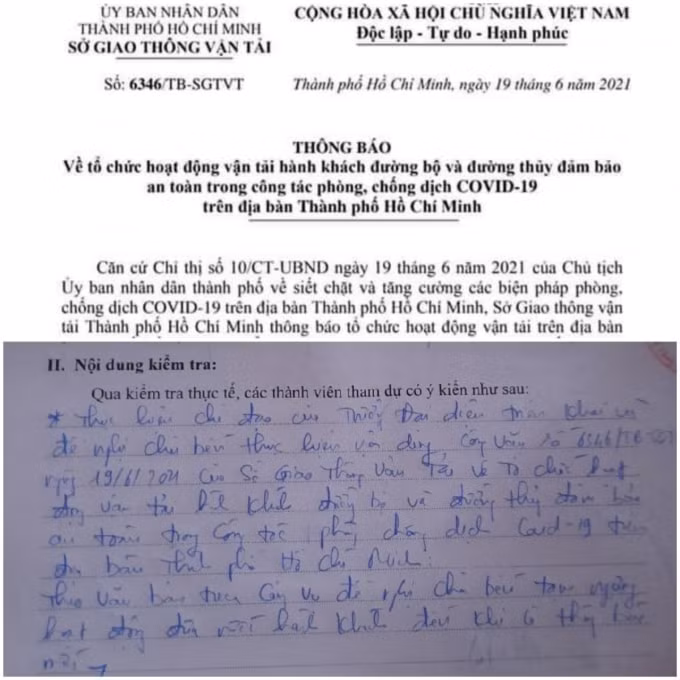 ỦY BAN NHÂN DÂN
THÀNH PHỐ HỒ CHÍ MINH
SỞ GIAO THÔNG VẬN TẢI
CỘNG HÒA XÃ HỘI CHỦ NGHĨA VIỆT NAM
Độc lập - Tự do - Hạnh phúc
Số: 6346/TB-SGTVT
Thành phố Hồ Chí Minh, ngày 19 tháng 6 năm 2021
THÔNG BÁO
Về tổ chức hoạt động vận tải hành khách đường bộ và đường thủy đảm bảo
an toàn trong công tác phòng, chống dịch COVID-19
trên địa bàn Thành phố Hồ Chí Minh
Căn cứ Chỉ thị số 10/CT-UBND ngày 19 tháng 6 năm 2021 của Chủ tịch
Ủy ban nhân dân thành phố về siết chặt và tăng cường các biện pháp phòng,
chống dịch COVID-19 trên địa bàn Thành phố Hồ Chí Minh, Sở Giao thông vận
tải Thành phố Hồ Chí Minh thông báo tổ chức hoạt động vận tải trên địa bàn
II. Nội dung kiểm tra:
Qua kiểm tra thực tế, các thành viên tham dự có ý kiến như sau:
* Thực hiện chỉ đạo của Thủy Đại diện
đề nghị chủ bến thực hiện nội dung Công văn số 6346/TB
ngày 19/6/2021 của Sở Giao Thông Vận Tải về Tổ chức hoạt
động vận tải hành khách đường bộ và đường thủy đảm bảo
an toàn trong công tác phòng chống dịch Covid-19 trên
địa bàn Thành phố Hồ Chí Minh.
Theo văn bản trên đề nghị chủ bến tạm ngưng
hoạt động đưa rước hành khách đến khi có thông báo
mới